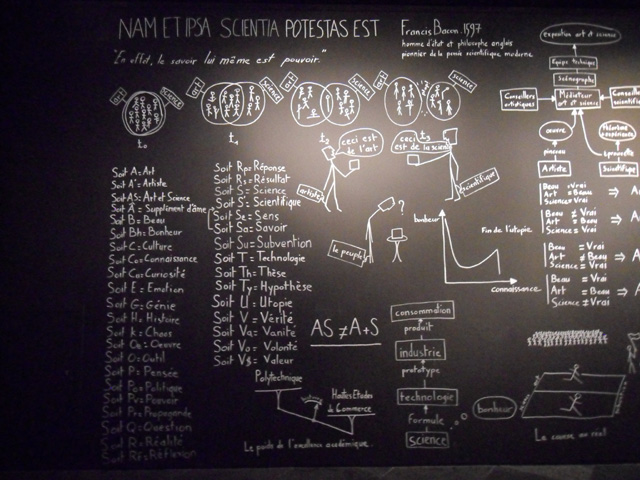 NAM ET IPSA SCIENTIA POTESTAS EST
Francis Bacon. 1597
homme d'état et philosophe anglais
pionnier de la pensée scientifique moderne
"En effet, le savoir lui même est pouvoir."
art
science
art
science
art
science
art
science
t₀
t₁
t₂
t₃
ceci est de l'art
ceci est de la science
artiste
scientifique
le peuple
?
Soit A = Art
Soit A' = Artiste
Soit AS = Art et Science
Soit Ä = Supplément d'âme
Soit B = Beau
Soit Bh = Bonheur
Soit C = Culture
Soit Co = Connaissance
Soit Ca = Curiosité
Soit E = Emotion
Soit G = Génie
Soit H = Histoire
Soit K = Chaos
Soit Oe = Oeuvre
Soit O = Outil
Soit P = Pensée
Soit Po = Politique
Soit Pv = Pouvoir
Soit Pr = Propagande
Soit Q = Question
Soit R = Réalité
Soit Rf = Réflexion
Soit Rp = Réponse
Soit R's = Résultat
Soit S = Science
Soit S' = Scientifique
Soit Se = Sens
Soit Sa = Savoir
Soit Su = Subvention
Soit T = Technologie
Soit Th = Thèse
Soit Ty = Hypothèse
Soit U = Utopie
Soit V = Vérité
Soit Va = Vanité
Soit Vo = Volonté
Soit V$ = Valeur
AS ≠ A+S
Polytechnique
Hautes Etudes de Commerce
Le poids de l'excellence académique.
bonheur
Fin de l'utopie.
connaissance
consommation
produit
industrie
prototype
technologie
Formule
science
bonheur
La course au réel
exposition art et science
équipe technique
Scénographe
Médiateur art et science
Conseillers artistiques
Conseillers
oeuvre
pinceau
éprouvette
Artiste
Scientifique
Beau = Vrai
Art = Beau ⇒ A
Science = Vrai
Beau ≠ Vrai
Art = Beau ⇒ A
Science = Vrai
Beau = Vrai
Art ≠ Beau ⇒ A
Science = Vrai
Beau = Vrai
Art = Beau ⇒ A
Science ≠ Vrai